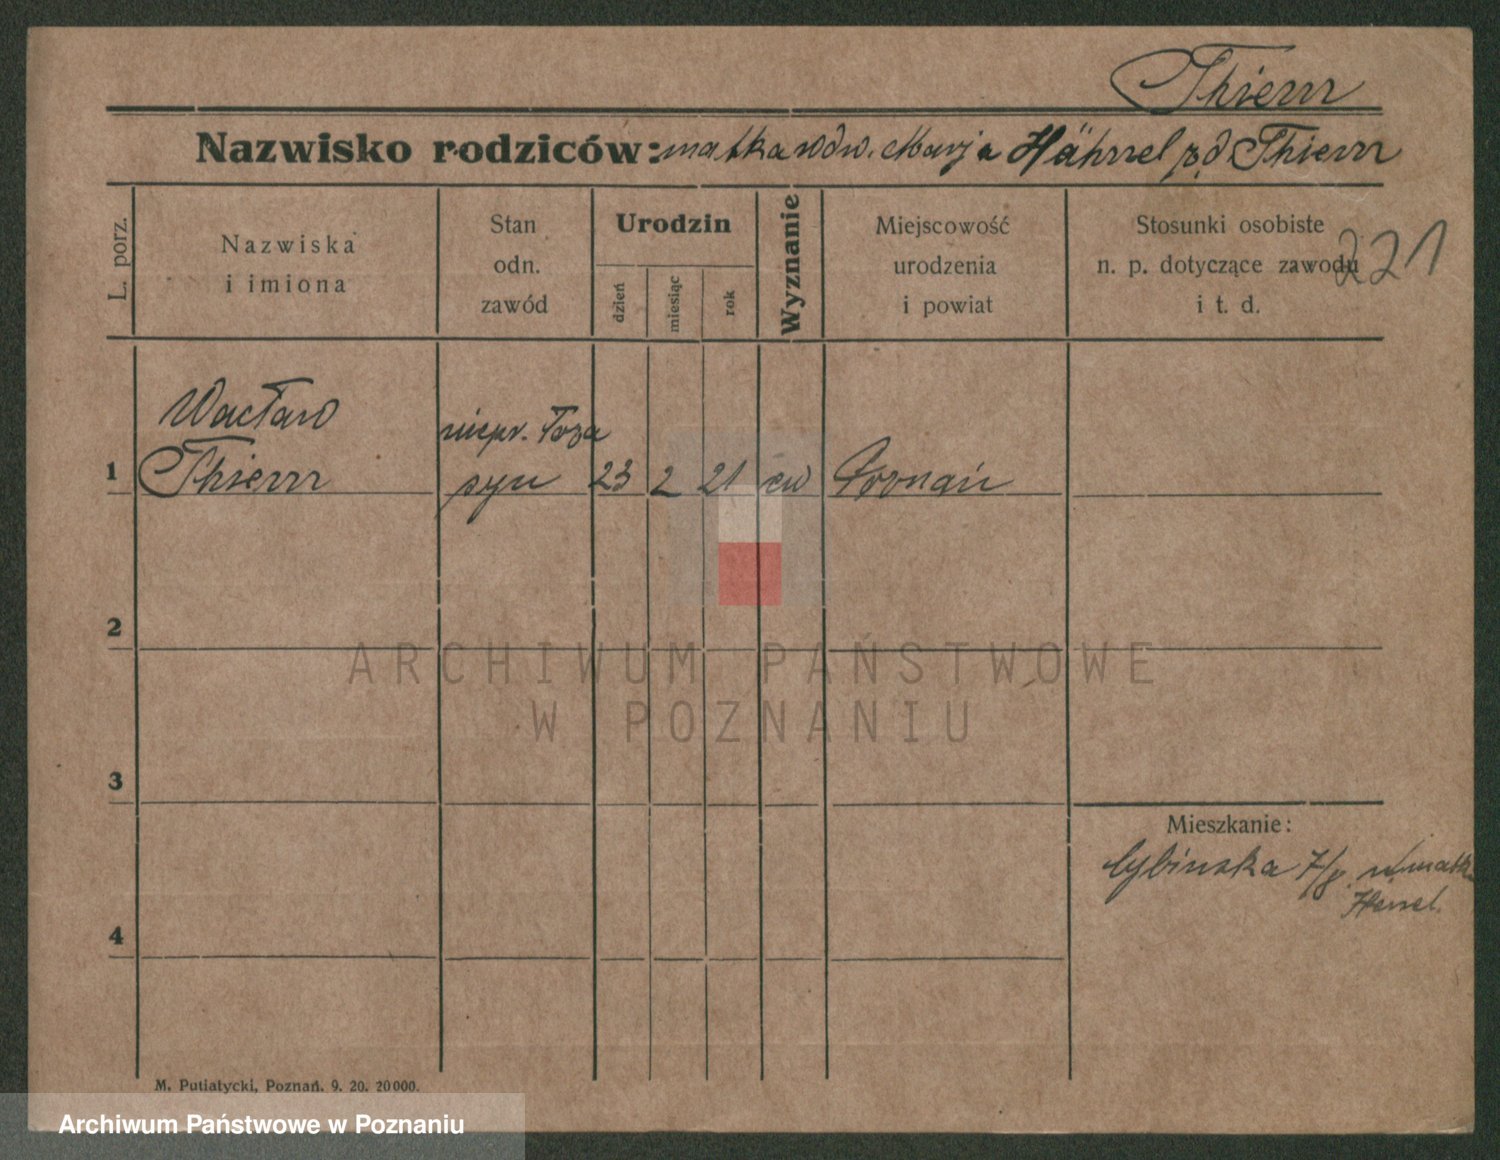 Thierrr
Nazwisko rodziców: matka wdw. Marja Hährrel z d. Thierrr
L. porz.
Nazwiska
i imiona
Stan
odn.
zawód
Urodzin
dzień
miesiąc
rok
Wyznanie
Miejscowość
urodzenia
i powiat
Stosunki osobiste
n. p. dotyczące zawodu
i t. d.
221
1
Wacław
Thierrr
niepr. łoża
syn
23
2
21
ew
Poznań
2
3
4
Mieszkanie:
Cybinska 7/8. u matk
M. Putiatycki, Poznań. 9. 20. 20000.
ARCHIWUM PAŃSTWOWE
W POZNANIU
Archiwum Państwowe w Poznaniu